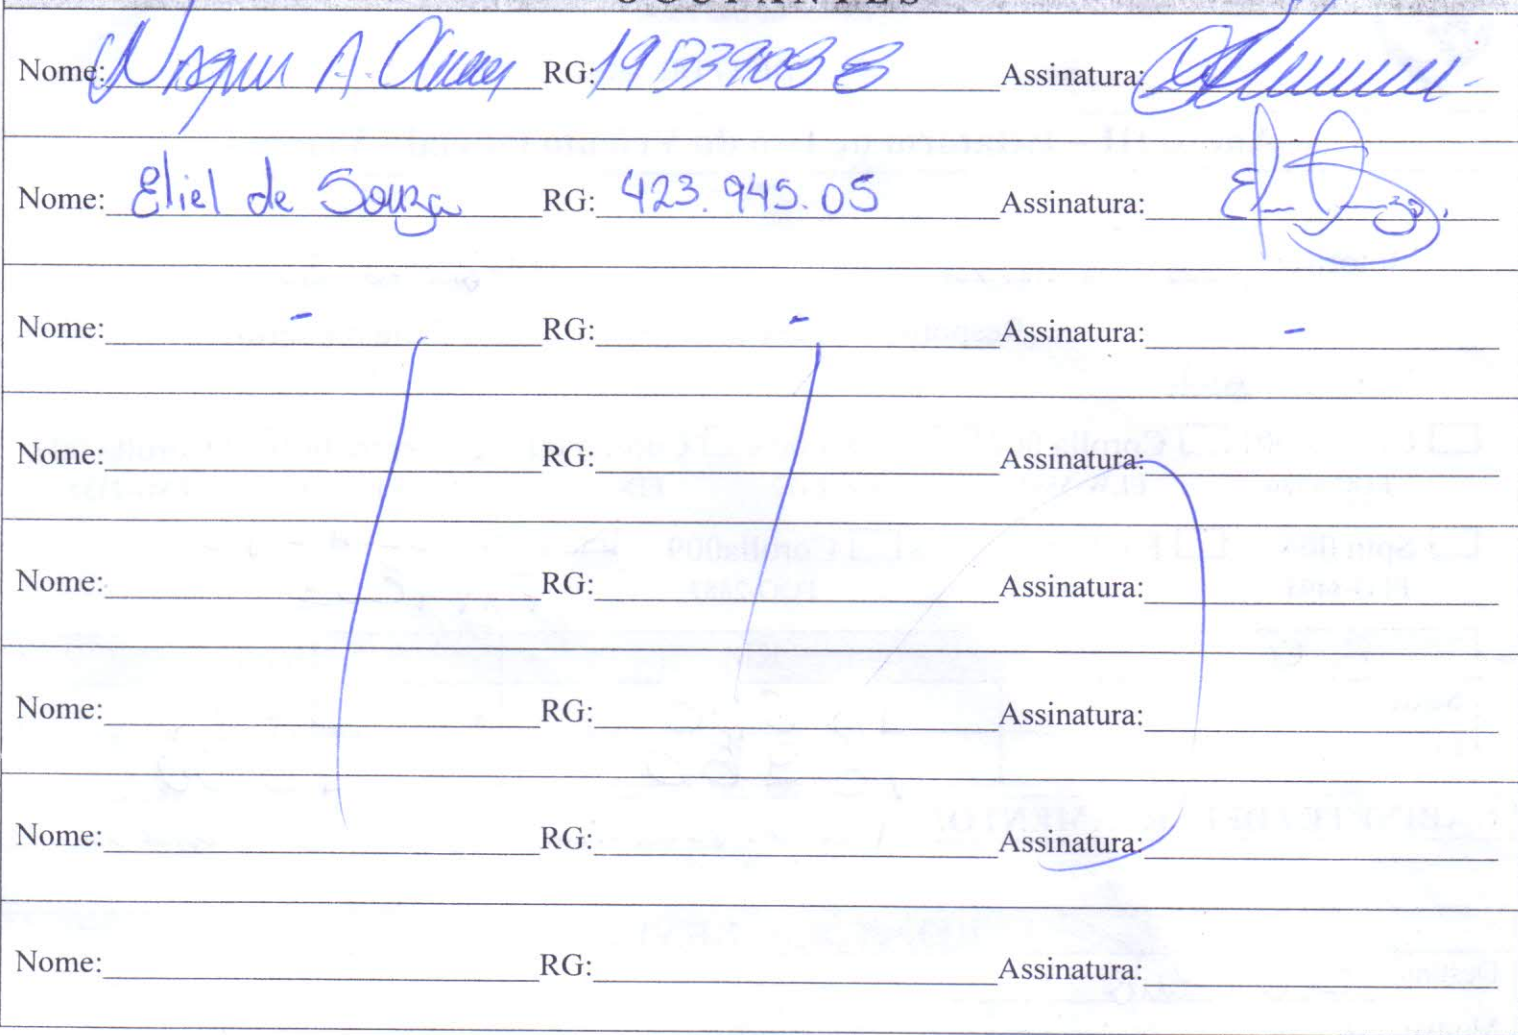 OCUPANTES
Nome: A. RG: Assinatura:
Nome: Eliel de Souza RG: 423.945.05 Assinatura:
Nome: - RG: - Assinatura: -
Nome: RG: Assinatura:
Nome: RG: Assinatura:
Nome: RG: Assinatura:
Nome: RG: Assinatura:
Nome: RG: Assinatura: